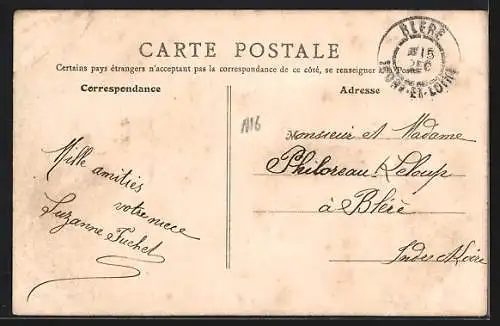 CARTE POSTALE
Certains pays étrangers n'acceptant pas la correspondance de ce côté, se renseigner à la Poste
Correspondance
Adresse
BLÉRÉ
15
DEC
INDRE-ET-LOIRE
A16
Monsieur et Madame
Philoreau Leloup
à Bléré
Indre & Loire
Mille amitiés
votre niece
Suzanne Tuchet